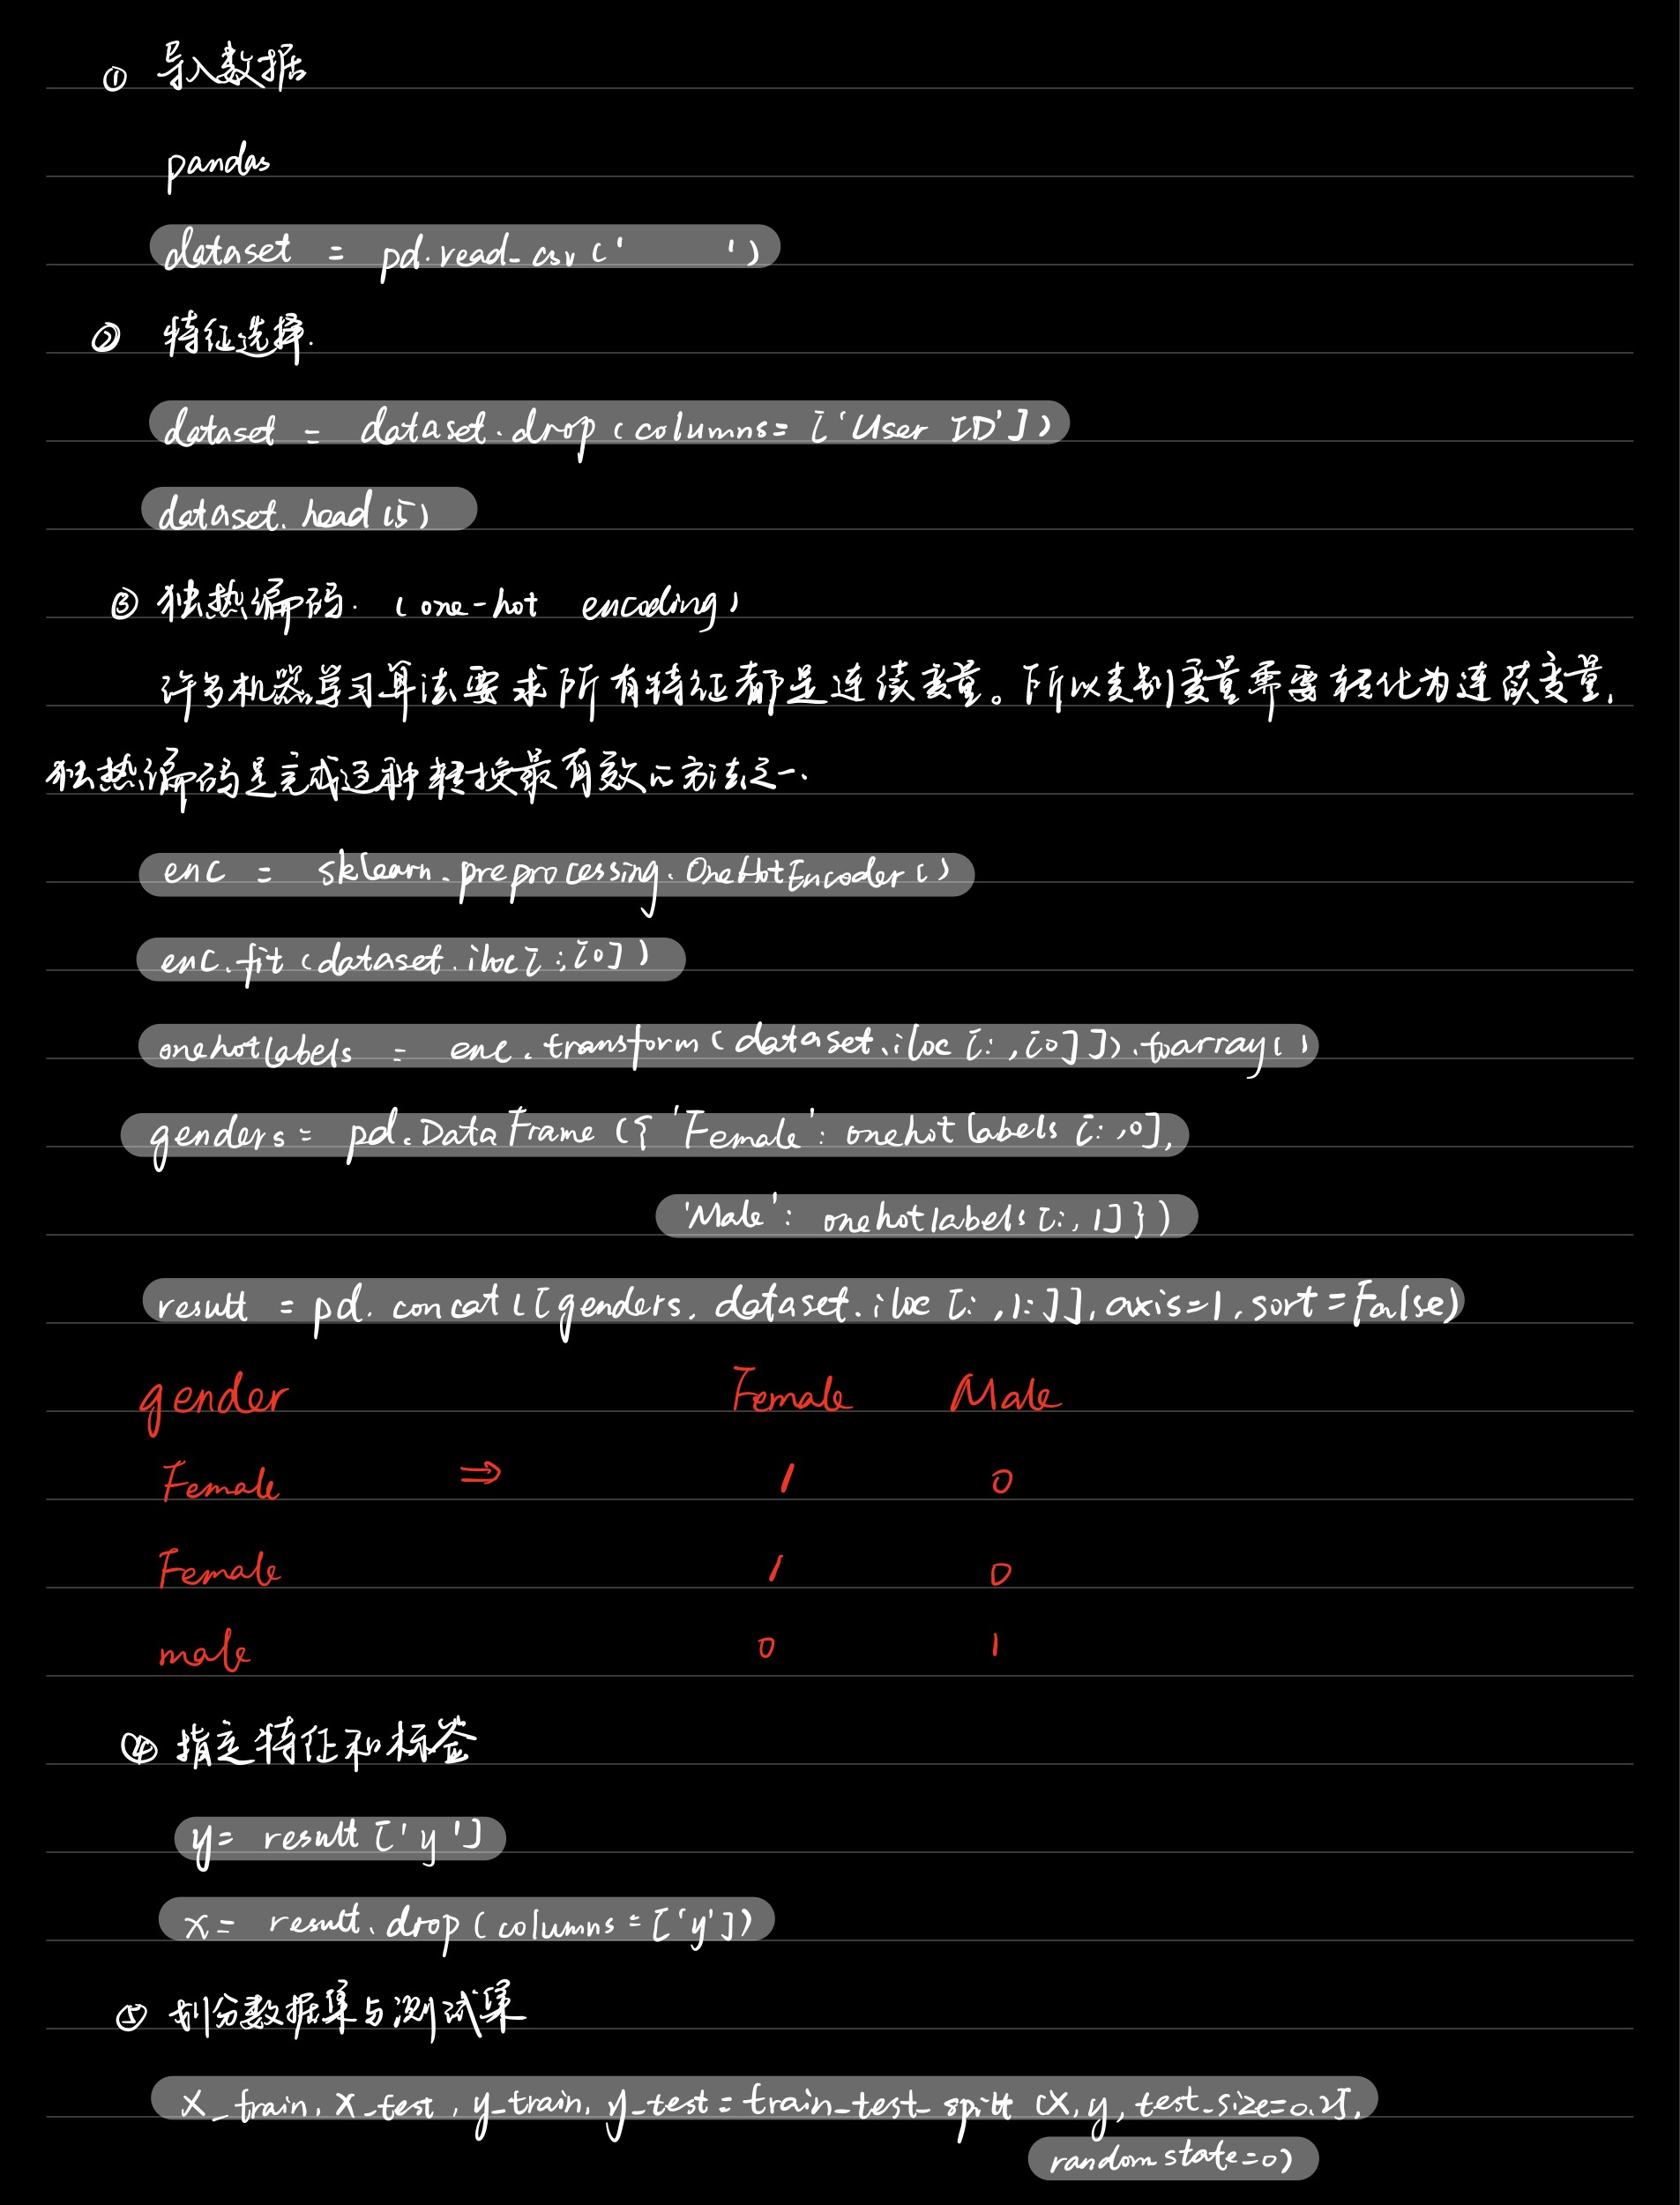 ① 导入数据
pandas
dataset = pd.read_csv('        ')
② 特征选择.
dataset = dataset.drop(columns=['User ID'])
dataset.head(5)
③ 独热编码. (one-hot encoding)
许多机器学习算法要求所有特征都是连续变量。所以类别变量需要转化为连续变量,
独热编码是完成这种转换最有效的方法之一.
enc = sklearn.preprocessing.OneHotEncoder()
enc.fit(dataset.iloc[:,[0])
onehotlabels = enc.transform(dataset.iloc[:,[0]]).toarray()
genders = pd.DataFrame({'Female': onehotlabels[:,0],
'Male': onehotlabels[:,1]})
result = pd.concat([genders, dataset.iloc[:,1:]], axis=1, sort=False)
gender Female Male
Female ⇒ 1 0
Female 1 0
male 0 1
④ 指定特征和标签
y = result['y']
x = result.drop(columns=['y'])
⑤ 划分数据集与测试集
X_train, X_test, y_train, y_test = train_test_split(X, y, test_size=0.25,
random state=0)